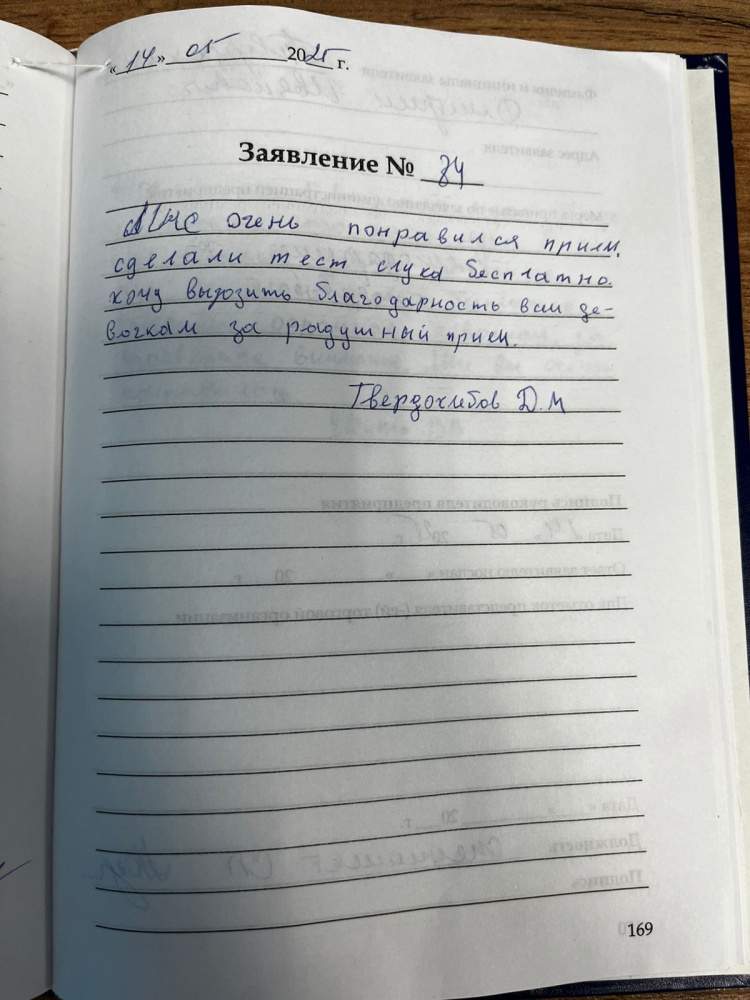 «14» 05 2025 г.
Заявление № 84
Мне очень понравился прием,
сделали тест слуха бесплатно.
хочу выразить благодарность вам де-
вочкам за радушный прием.
Твердохлебов Д.М
169